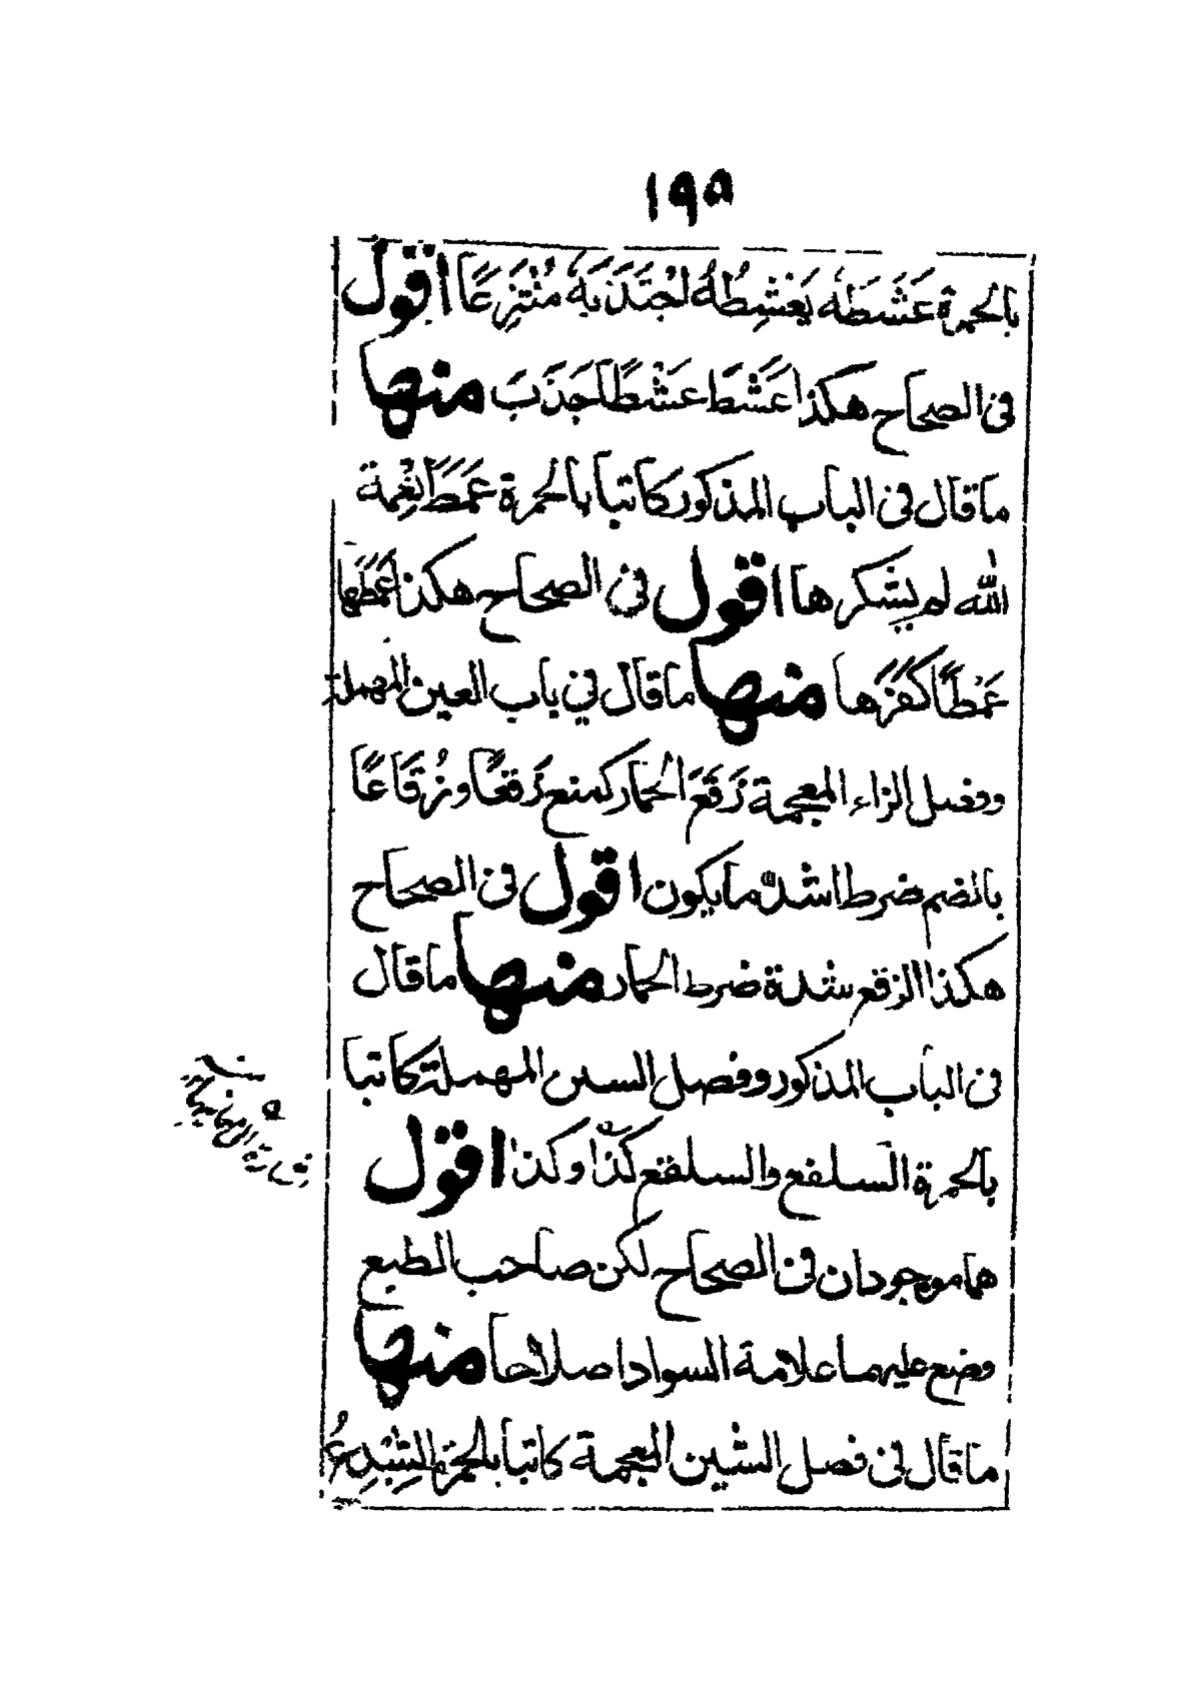 ١٩٥
بالحمرة عَشَطَهٗ يَعْشِطُهُ اجْتَذَبَهُ مُنْتَزِعًا اقول
فى الصحاح هكذا عَشَطَ عَشْطًا جَذَبَ منها
ما قال فى الباب المذكور كاتبا بالحمرة عَمَطَ نِعْمة
الله لم يشكرها اقول فى الصحاح هكذا عَمَطَها
عَمْطًا كَفَرَها منها ما قال في باب العين المهملة
وفصل الزاء المعجمة زَقَعَ الحمار كمنع زَقْعًا وزُقَاعًا
بالضم ضرط اشدّ ما يكون اقول فى الصحاح
هكذا الزقع شدة ضرط الحمار منها ما قال
فى الباب المذكور وفصل السين المهملة كاتبا
بالحمرة السلفع والسلقع كذا وكذا اقول
هما موجودان فى الصحاح لكن صاحب الطبع
وضع عليهما علامة السواد اصلاحا منها
ما قال فى فصل الشين المعجمة كاتبا بالحمرة الشِبْدِعُ